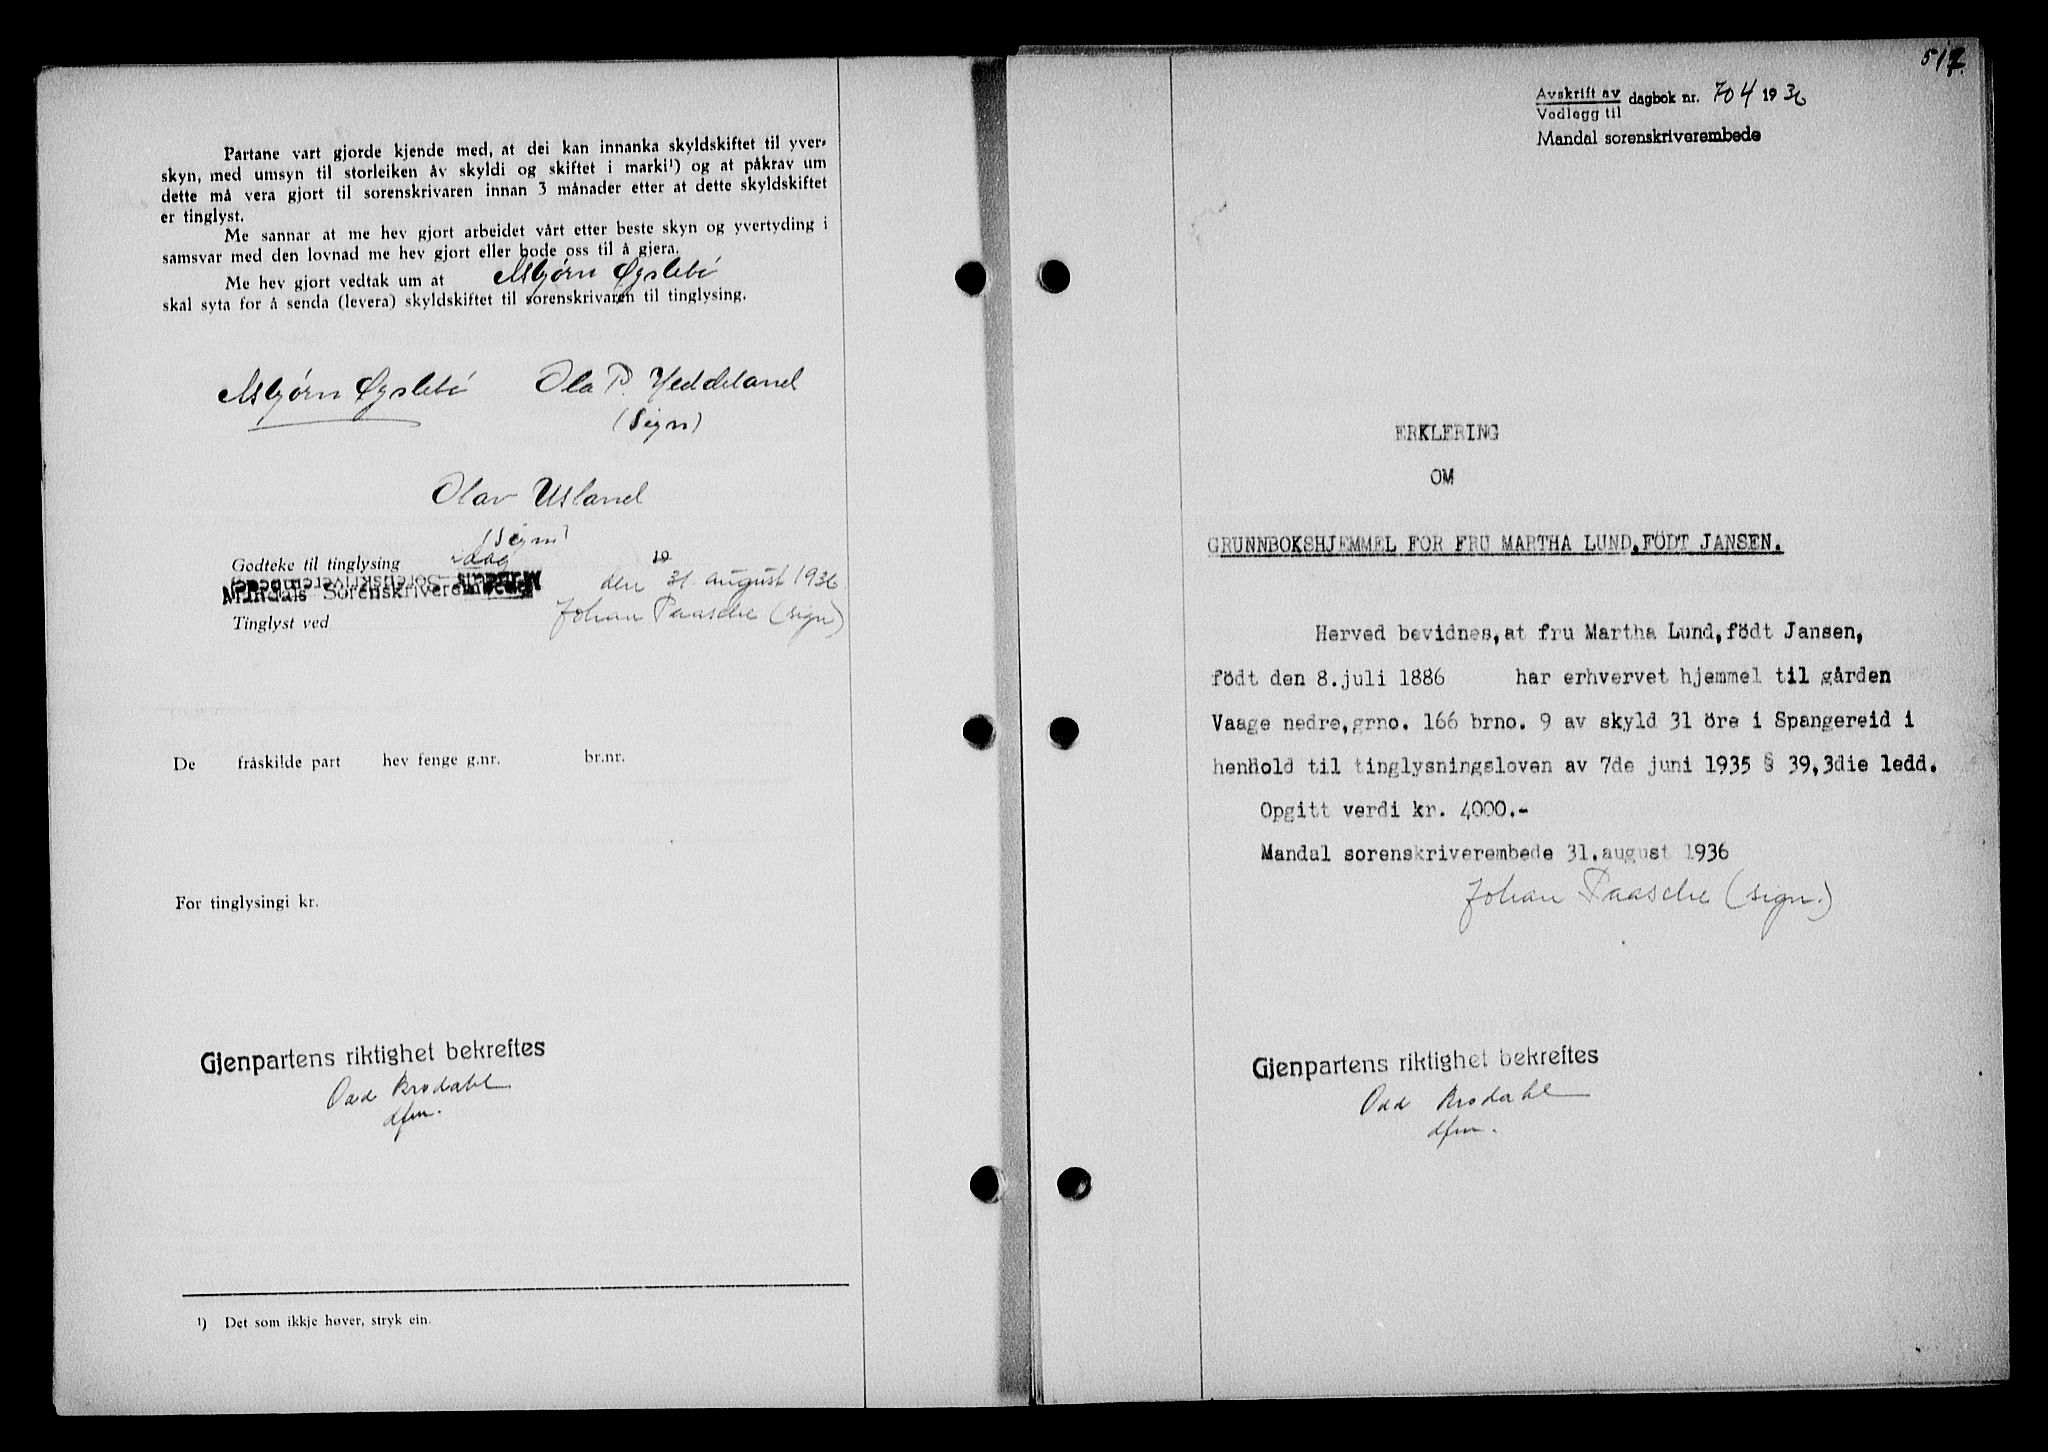 Partane vart gjorde kjende med, at dei kan innanka skyldskiftet til yver-
skyn, med umsyn til storleiken åv skyldi og skiftet i marki¹) og at påkrav um
dette må vera gjort til sorenskrivaren innan 3 månader etter at dette skyldskiftet
er tinglyst.
Me sannar at me hev gjort arbeidet vårt etter beste skyn og yvertyding i
samsvar med den lovnad me hev gjort eller bode oss til å gjera.
Me hev gjort vedtak um at Asbjørn Øyslebø
skal syta for å senda (levera) skyldskiftet til sorenskrivaren til tinglysing.
Asbjørn Øyslebø Ola P. Heddeland
(Sign)
Olav Usland
(Sign)
Godteke til tinglysing idag 19
Mandals Sorenskriverembede den 31. august 1936
Tinglyst ved Johan Paasche (sign)
De fråskilde part hev fenge g.nr. br.nr.
For tinglysingi kr.
Gjenpartens riktighet bekreftes
Odd Brodahl
dfm.
¹) Det som ikkje høver, stryk ein.
517.
Avskrift av
Vedlegg til
dagbok nr. 704 1936
Mandal sorenskriverembede
ERKLERING
OM
GRUNNBOKSHJEMMEL FOR FRU MARTHA LUND, FÖDT JANSEN.
Herved bevidnes, at fru Martha Lund, födt Jansen,
födt den 8. juli 1886 har erhvervet hjemmel til gården
Vaage nedre, grno. 166 brno. 9 av skyld 31 öre i Spangereid i
henhold til tinglysningsloven av 7de juni 1935 § 39, 3die ledd.
Opgitt verdi kr. 4000.-
Mandal sorenskriverembede 31. august 1936
Johan Paasche (sign.)
Gjenpartens riktighet bekreftes
Odd Brodahl
dfm.